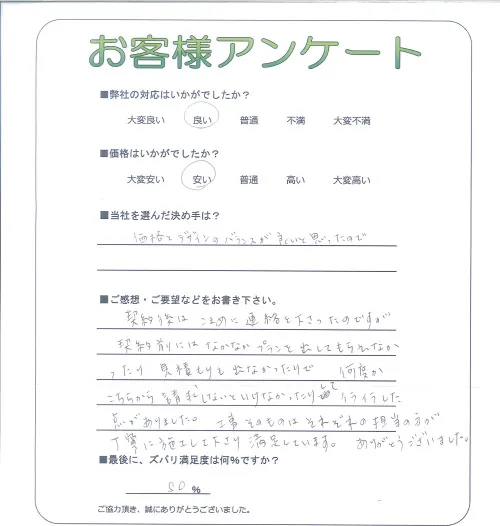 お客様アンケート
■弊社の対応はいかがでしたか？
大変良い 良い 普通 不満 大変不満
■価格はいかがでしたか？
大変安い 安い 普通 高い 大変高い
■当社を選んだ決め手は？
価格とデザインのバランスが良いと思ったので
■ご感想・ご要望などをお書き下さい。
契約後は こまめに連絡を下さったのですが
契約前にはなかなかプランを出してもらえなか
ったり 見積もりも出なかったりで 何度か
こちらから請求しないといけなかったりして イライラした
点がありました。 工事そのものは それぞれの担当の方が
丁寧に施工して下さり 満足しています。 ありがとうございました。
■最後に、ズバリ満足度は何％ですか？
80 ％
ご協力頂き、誠にありがとうございました。